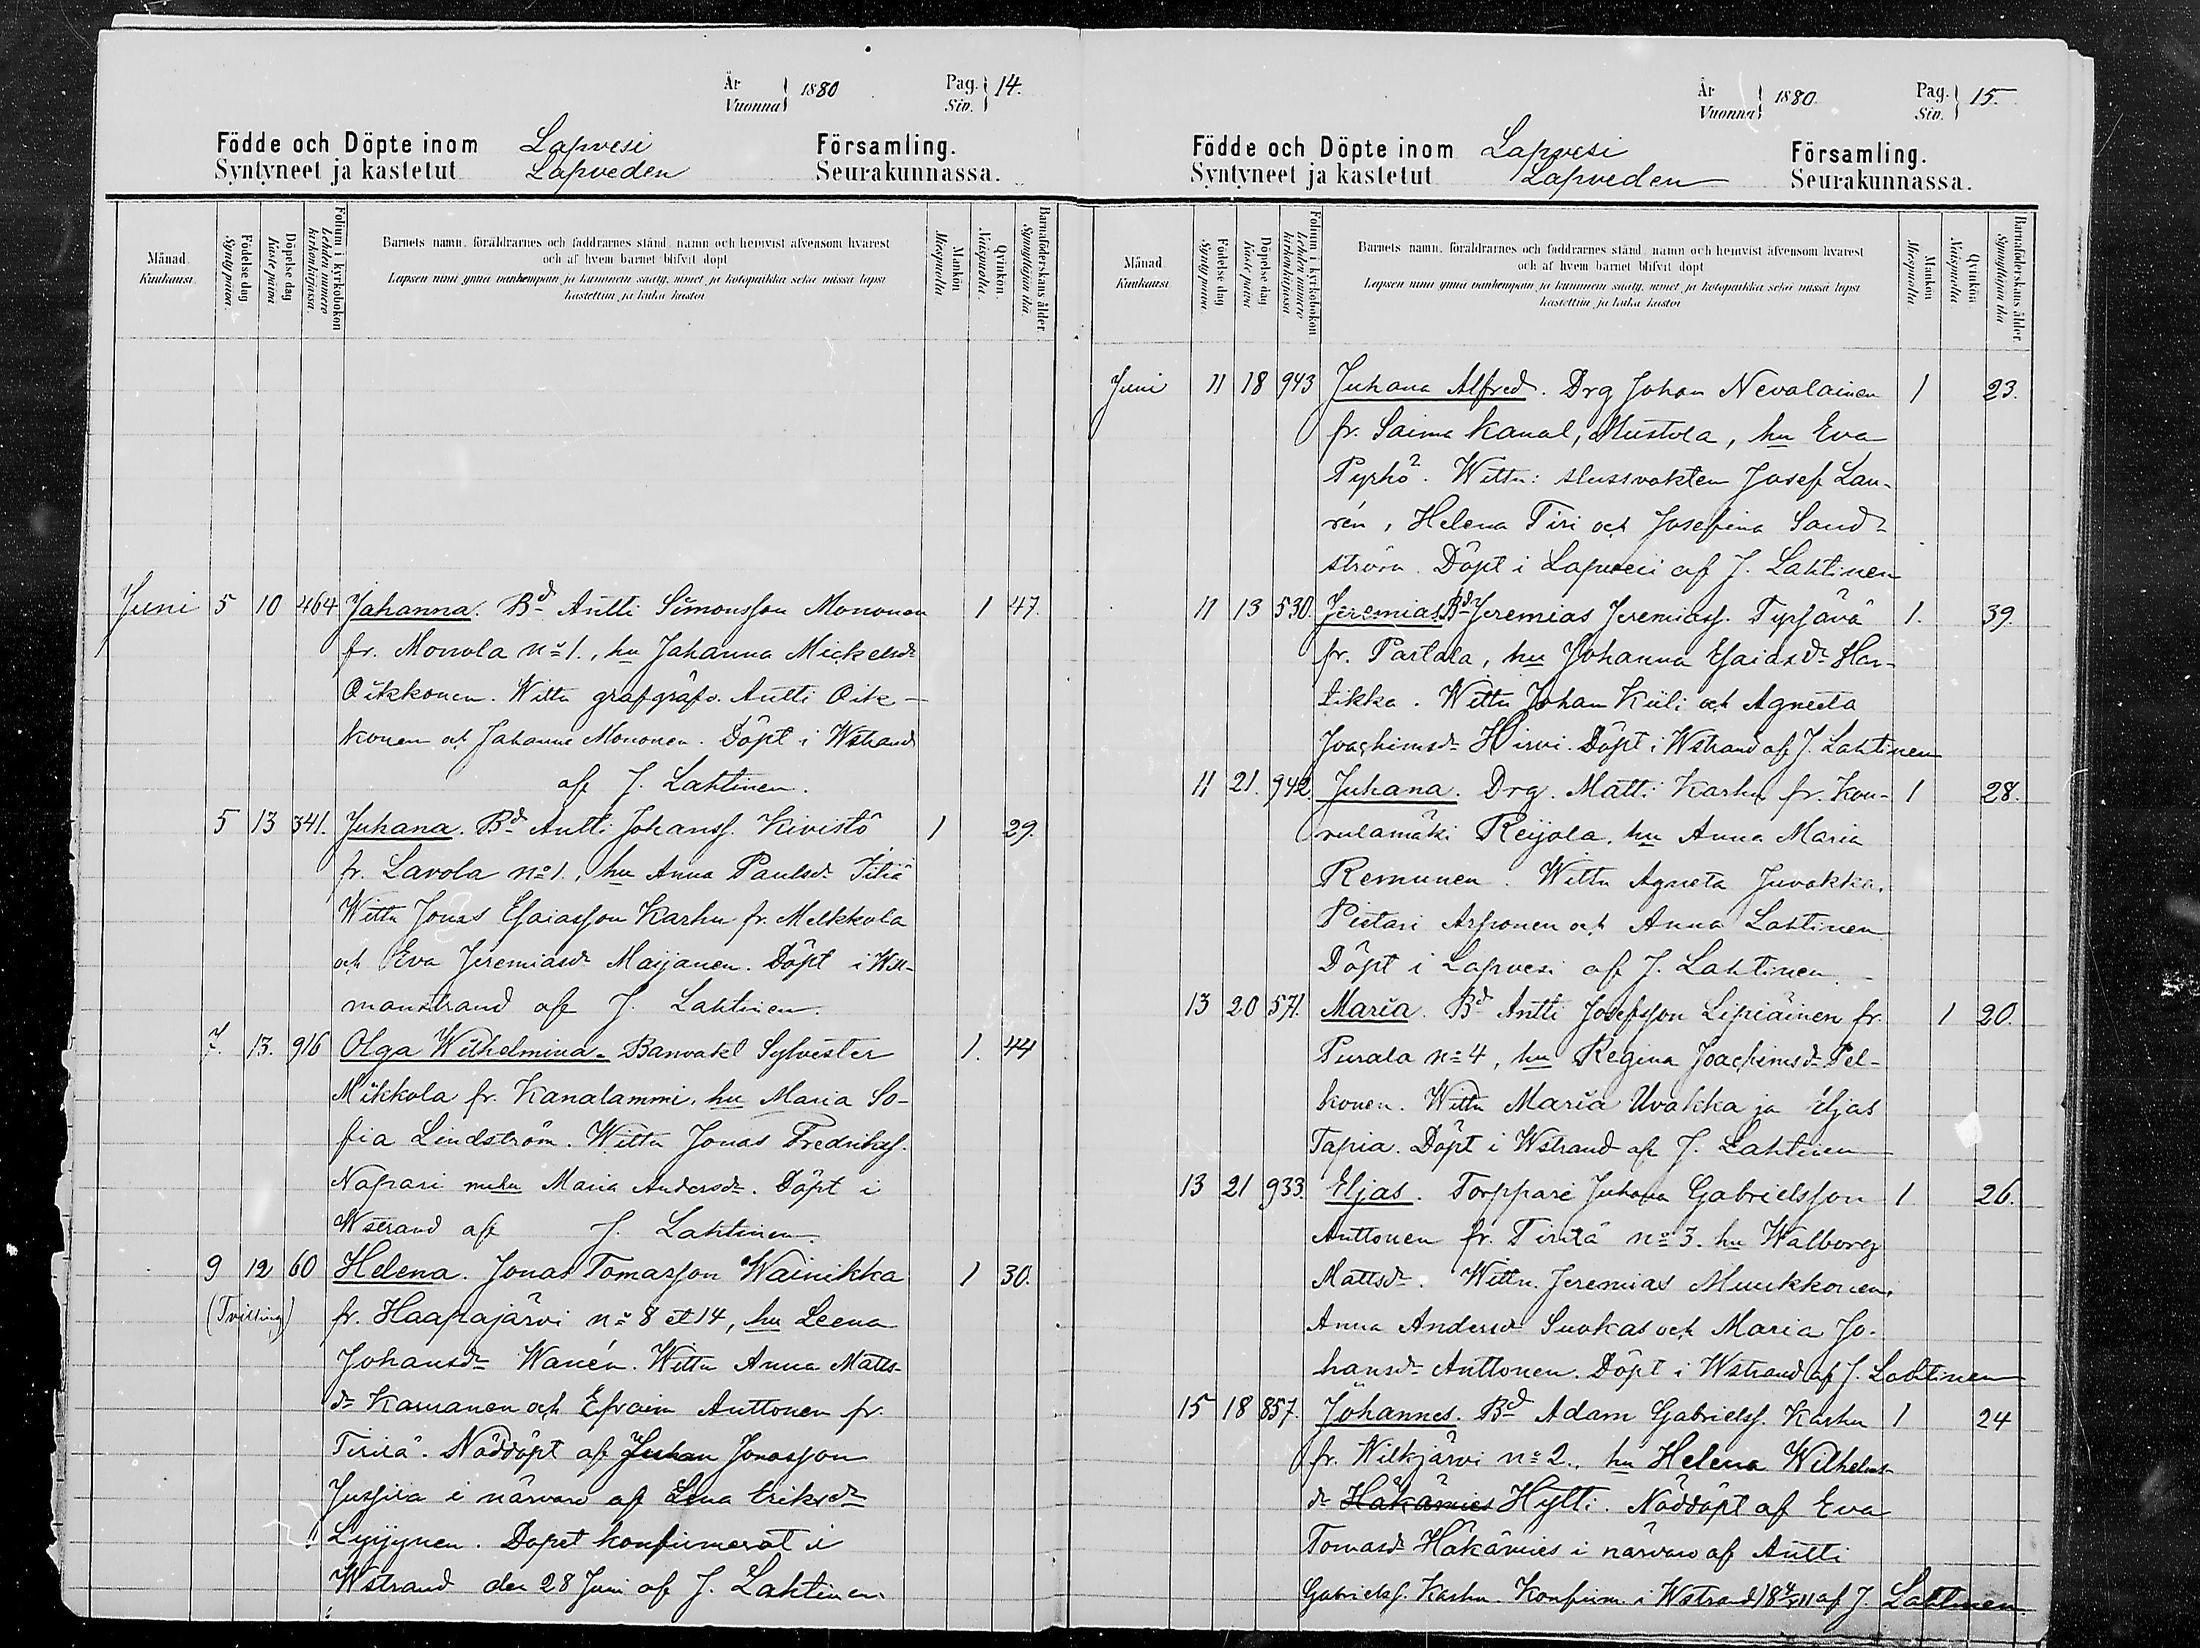 År
Vuonna } 1880
Pag.
Siv. } 14.
Födde och Döpte inom Lapvesi Församling.
Syntyneet ja kastetut Lapveden Seurakunnassa.
Månad. Kuukausi.
Födelse dag Synty päivä.
Döpelse dag Kaste päivä.
Folium i kyrkoboken Lehden numero kirkonkirjassa.
Barnets namn, föräldrarnes och faddrarnes stånd, namn och hemvist äfvensom hvarest
och af hvem barnet blifvit döpt
Lapsen nimi ynnä vanhempain ja kummein sääty, nimet ja kotopaikka sekä missä lapsi
kastettiin ja kuka kastoi
Mankön Miespuolia
Qvinkön Naispuolia.
Barnaföderskans ålder Synnyttäjän ikä.
Juni 5 10 464 Johanna. Bd Antti Simonsson Mononen 1 47.
fr. Monola No 1., hu Johanna Mickelsdr
Oikkonen. Wittn grafgräfv. Antti Oik-
konen och Johanna Mononen. Döpt i Wstrand
af J. Lahtinen.
5 13 341. Juhana. Bd Antti Johanss. Kivistö 1 29.
fr. Lavola No 1., hu Anna Paulsdr Tiliä
Wittn Jonas Esaiasson Karhu fr. Melkkola
och Eva Jeremiasdr Maijanen. Döpt i Will-
manstrand af J. Lahtinen.
7. 13. 916 Olga Wilhelmina. Banvakt Sylvester 1. 44
Mikkola fr. Kanalammi, hu Maria So-
fia Lindström. Wittn Jonas Fredrikss.
Napari m hu Maria Andersdr. Döpt i
Wstrand af J. Lahtinen.
9 12 60 Helena. Jonas Tomasson Wainikka 1 30.
(Tvilling) fr. Haapajärvi No 8 et 14, hu Leena
Johansdr Wanén. Wittn Anna Matts-
dr Karnanen och Efraim Anttonen fr.
Tiriä. Nöddöpt af Juhan Jonasson
Jussila i närvaro af Lena Eriksdr
Lyijynen. Dopet konfirmerat i
Wstrand den 28 Juni af J. Lahtinen
År
Vuonna } 1880.
Pag.
Siv. } 15.
Födde och Döpte inom Lapvesi Församling.
Syntyneet ja kastetut Lapveden Seurakunnassa.
Månad. Kuukausi
Födelse dag Synty päivä
Döpelse dag. Kaste päivä.
Folium i kyrkoboken Lehden numero kirkonkirjassa
Barnets namn, föräldrarnes och faddrarnes stånd, namn och hemvist äfvensom hvarest
och af hvem barnet blifvit döpt
Lapsen nimi ynnä vanhempain ja kummein sääty, nimet ja kotopaikka sekä missä lapsi
kastettiin ja kuka kastoi
Mankön Miespuolia.
Qvinkön Naispuolia.
Barnaföderskans ålder Synnyttäjän ikä
Juni 11 18 943 Juhana Alfred. Drg Johan Nevalainen 1 23.
fr. Saima Kanal, Mustola, hu Eva
Pyrhö. Wittn: slussvakten Josef Lau-
rén, Helena Tiri och Josefina Sand-
ström. Döpt i Lapvesi af J. Lahtinen
11 13 530. Jeremias. Bd Jeremias Jeremiass. Typpävä 1. 39.
fr. Partala, hu Johanna Esaiasdr Har-
tikka. Wittn Johan Kiili och Agneeta
Joachimsdr Hirvi. Döpt i Wstrand af J. Lahtinen
11 21. 942. Juhana. Drg. Matti Karhu fr. Kou- 1 28.
vulamäki Reijola, hu Anna Maria
Remunen. Wittn Agneta Juvakka,
Pietari Asponen och Anna Lahtinen
Döpt i Lapvesi af J. Lahtinen
13 20 571. Maria. Bd Antti Josefsson Lipiäinen fr. 1 20.
Purala No 4, hu Regina Joachimsdr Pel-
konen. Wittn Maria Uvakka ja Eljas
Tapia. Döpt i Wstrand af J. Lahtinen
13 21 933. Eljas. Torppari Juhana Gabrielsson 1 26.
Anttonen fr. Tiriä No 3. hu Walborg
Mattsdr. Wittn. Jeremias Muukkonen,
Anna Andersdr Suokas och Maria Jo-
hansdr Anttonen. Döpt i Wstrand af J. Lahtinen
15 18 857. Johannes. Bd Adam Gabrielss. Karhu 1 24
fr. Wilkjärvi No 2., hu Helena Wilhelms-
dr Häkämies Hytti. Nöddöpt af Eva
Tomasdr Häkämies i närvaro af Antti
Gabrielss. Karhu. Konfirm. i Wstrand 18 4/VII af J. Lahtinen